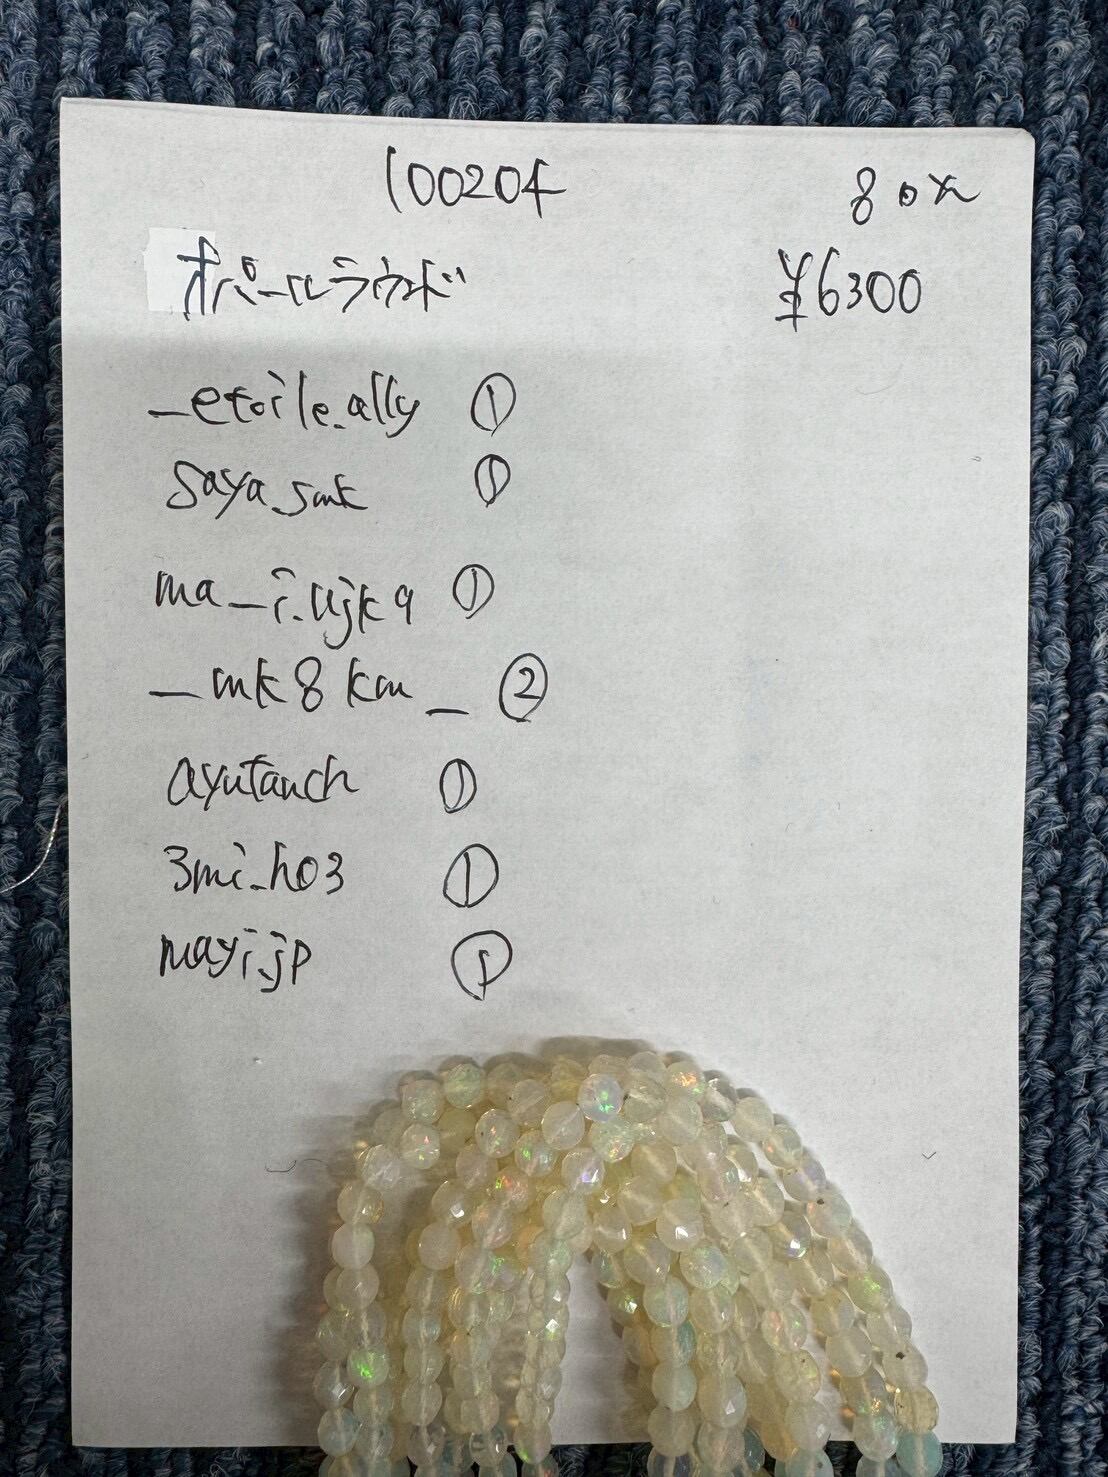 100204
80x
オパールラウンド
¥6300
_etoile.ally ①
saya_smk ①
ma_i.ujk9 ①
_mk8km_ ②
ayutanch ①
3mi_ho3 ①
mayi.jp ①